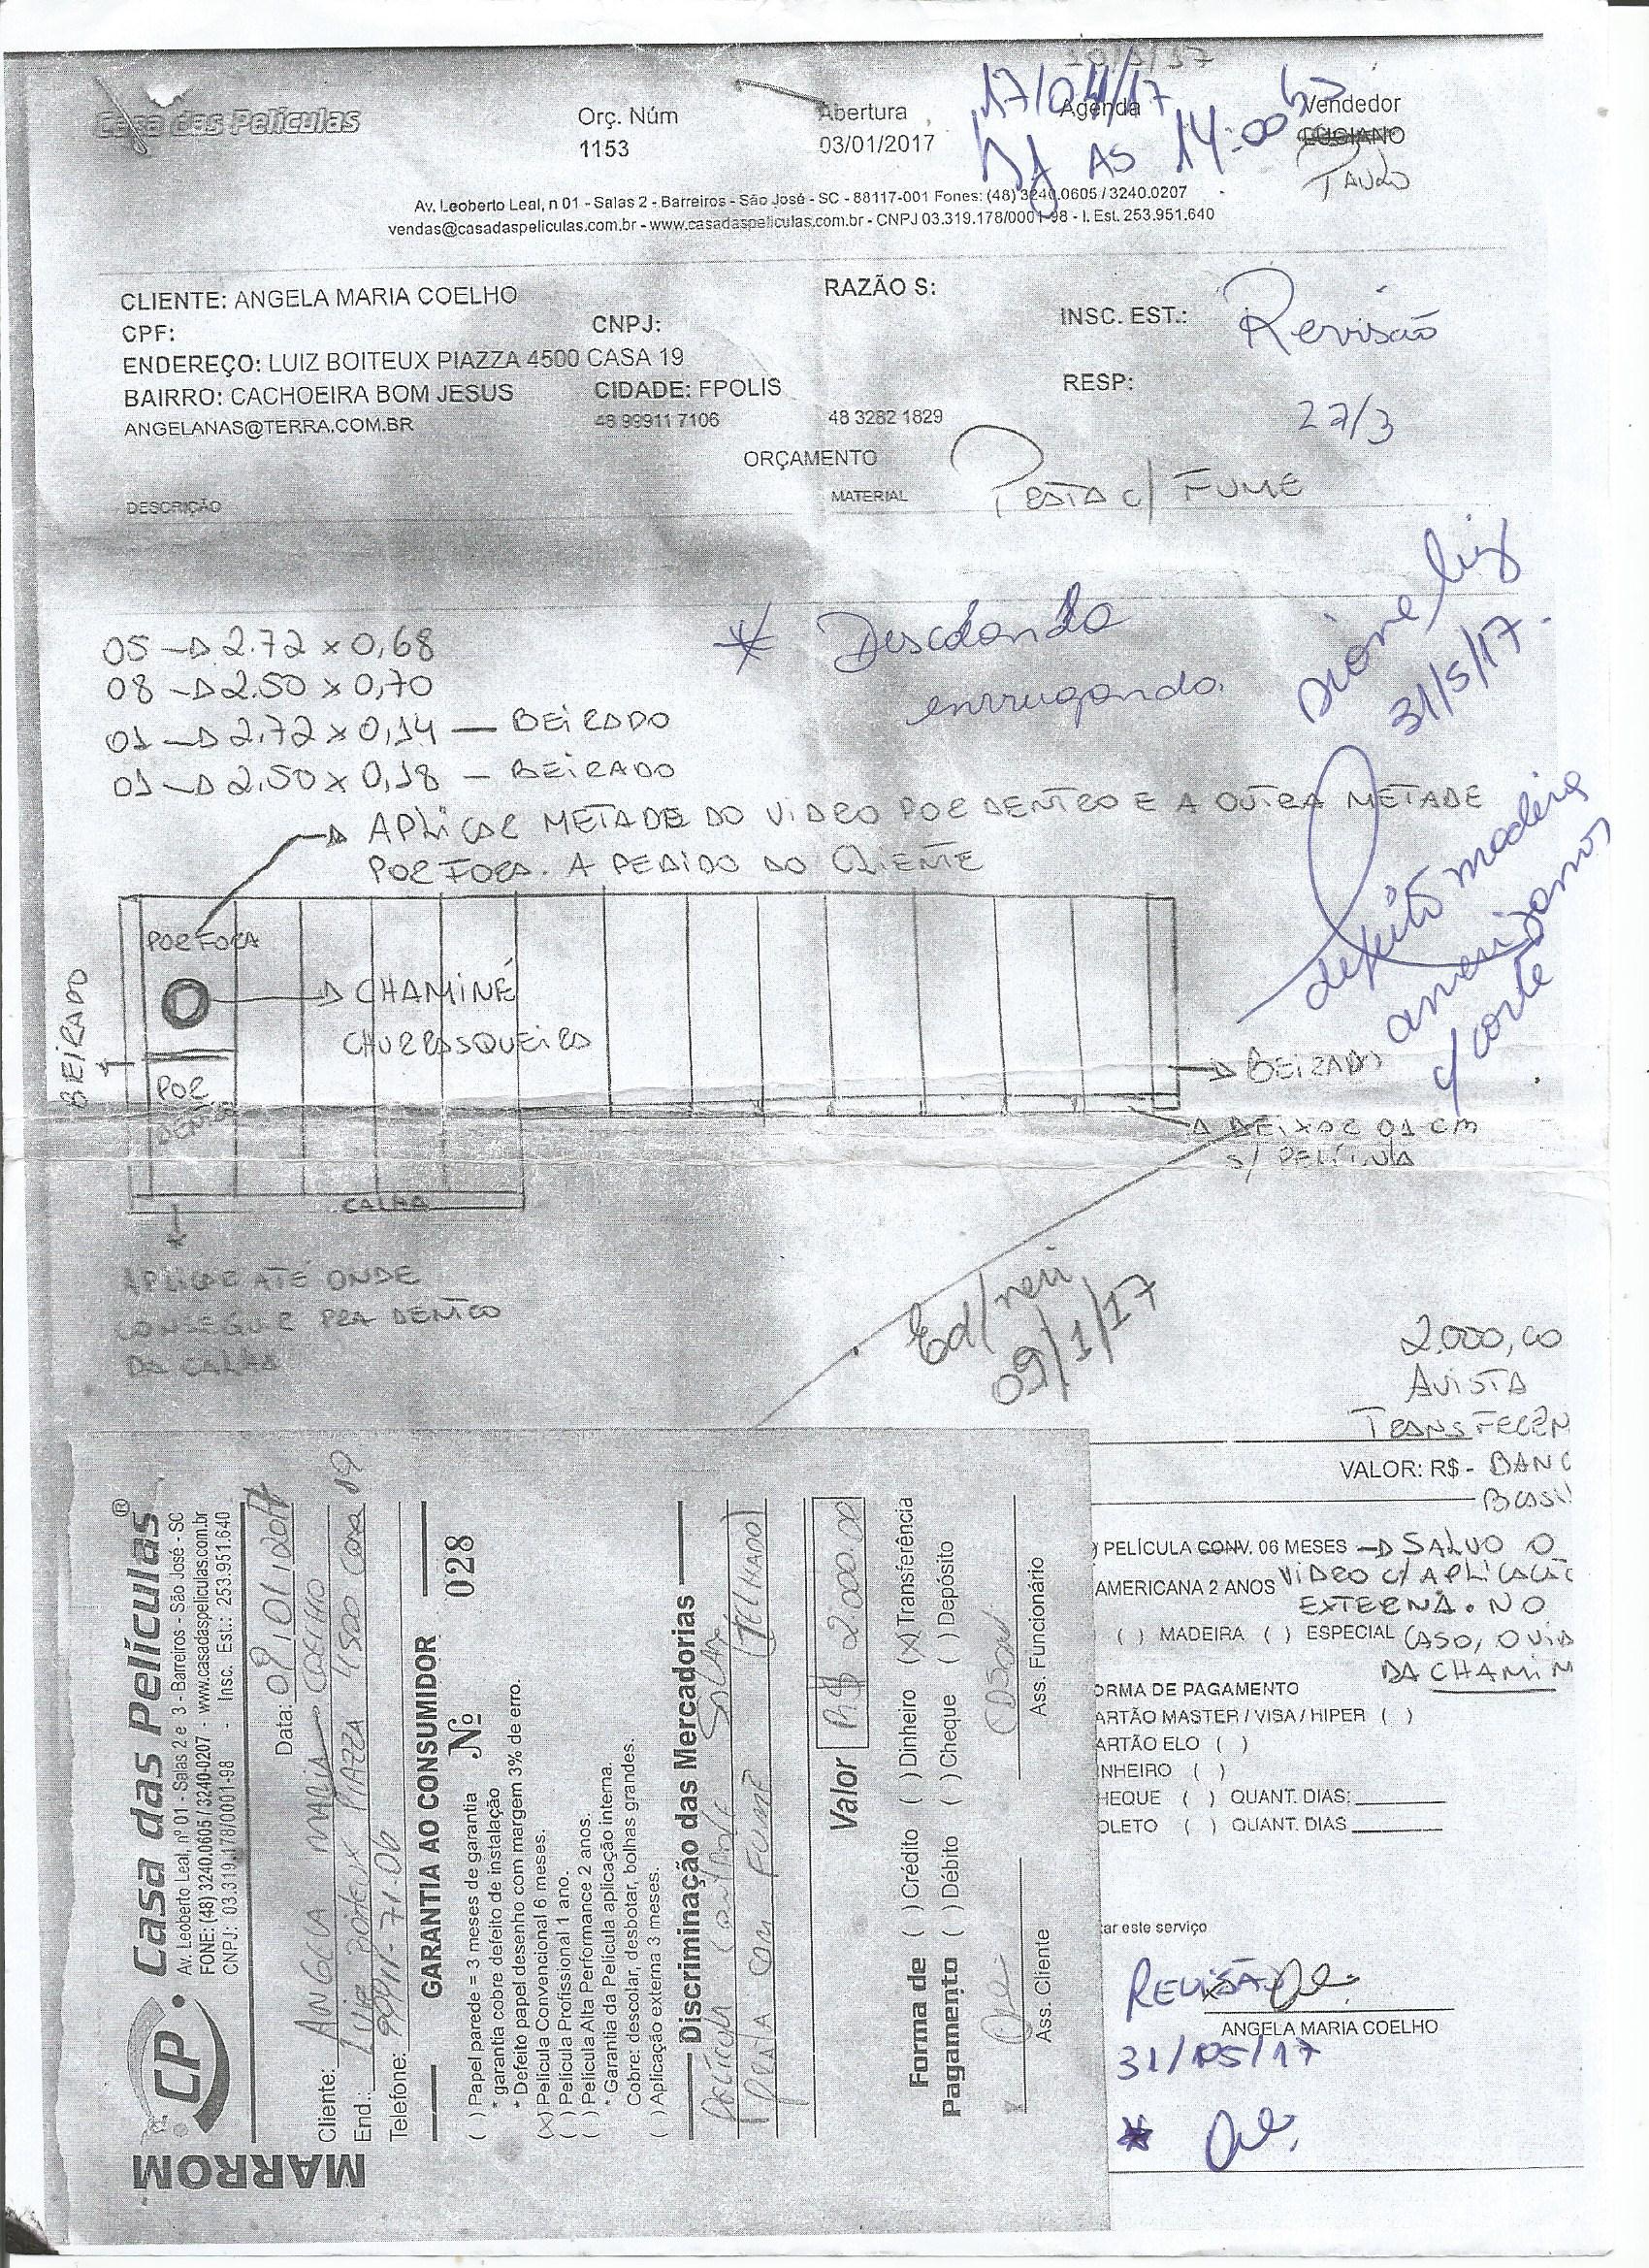 Casa das Películas
Orç. Núm
1153
Abertura
03/01/2017
Agenda
17/04/17
AS 14:00 hs
Vendedor
LUCIANO
Av. Leoberto Leal, n 01 - Salas 2 - Barreiros - São José - SC - 88117-001 Fones: (48) 3240.0605 / 3240.0207
vendas@casadaspeliculas.com.br - www.casadaspeliculas.com.br - CNPJ 03.319.178/0001-98 - I. Est. 253.951.640
CLIENTE: ANGELA MARIA COELHO
RAZÃO S:
CPF:
CNPJ:
INSC. EST.:
Revisão
ENDEREÇO: LUIZ BOITEUX PIAZZA 4500 CASA 19
BAIRRO: CACHOEIRA BOM JESUS
CIDADE: FPOLIS
RESP:
27/3
ANGELANAS@TERRA.COM.BR
48 99911 7106
48 3282 1829
ORÇAMENTO
DESCRIÇÃO
MATERIAL
PRATA C/ FUME
* Descolando
enrrugando.
Dione Luiz
31/5/17.
05 → 2.72 x 0,68
08 → 2.50 x 0,70
01 → 2.72 x 0,14 — BEIRADO
01 → 2.50 x 0,18 — BEIRADO
APLICAR METADE DO VIDRO POR DENTRO E A OUTRA METADE
POR FORA. A PEDIDO DO CLIENTE
defeito madeira
amenizamos
c/ corte
POR FORA
CHAMINÉ
CHURRASQUEIRA
BEIRADO
POR
DENTRO
BEIRADO
DEIXAR 01 CM
S/ PELÍCULA
CALHA
APLICAR ATÉ ONDE
CONSEGUIR PRA DENTRO
DA CALHA
Ed/neri
09/1/17
2.000,00
AVISTA
TRANSFEREN
VALOR: R$ - BANC
BRASIL
PELÍCULA CONV. 06 MESES → SALVO O
AMERICANA 2 ANOS VIDRO C/ APLICAÇÃO
EXTERNA. NO
( ) MADEIRA ( ) ESPECIAL CASO, O VID
DA CHAMIN
ORMA DE PAGAMENTO
ARTÃO MASTER / VISA / HIPER ( )
ARTÃO ELO ( )
NHEIRO ( )
HEQUE ( ) QUANT. DIAS:
OLETO ( ) QUANT. DIAS
ar este serviço
REVISÃO
ANGELA MARIA COELHO
31/05/17
*
MARROM
CP.
Casa das Películas®
Av. Leoberto Leal, nº 01 - Salas 2 e 3 - Barreiros - São José - SC
FONE: (48) 3240.0605 / 3240-0207 - www.casadaspeliculas.com.br
CNPJ: 03.319.178/0001-98 - Insc. Est.: 253.951.640
Data: 09/01/2017
Cliente: ANGELA MARIA COELHO
End.: Luiz Boiteux PIAZZA 4500 Casa 19
Telefone: 99911-71-06
GARANTIA AO CONSUMIDOR
Nº 028
( ) Papel parede = 3 meses de garantia
* garantia cobre defeito de instalação
* Defeito papel desenho com margem 3% de erro.
(X) Película Convencional 6 meses.
( ) Película Profissional 1 ano.
( ) Película Alta Performance 2 anos.
* Garantia da Película aplicação interna.
Cobre: descolar, desbotar, bolhas grandes.
( ) Aplicação externa 3 meses.
Discriminação das Mercadorias
Película Controle SOLAR
PRATA COM FUMÊ (TELHADO)
Valor R$ 2.000,00
Forma de Pagamento
( ) Crédito ( ) Dinheiro (X) Transferência
( ) Débito ( ) Cheque ( ) Depósito
Ass. Cliente
Ass. Funcionário